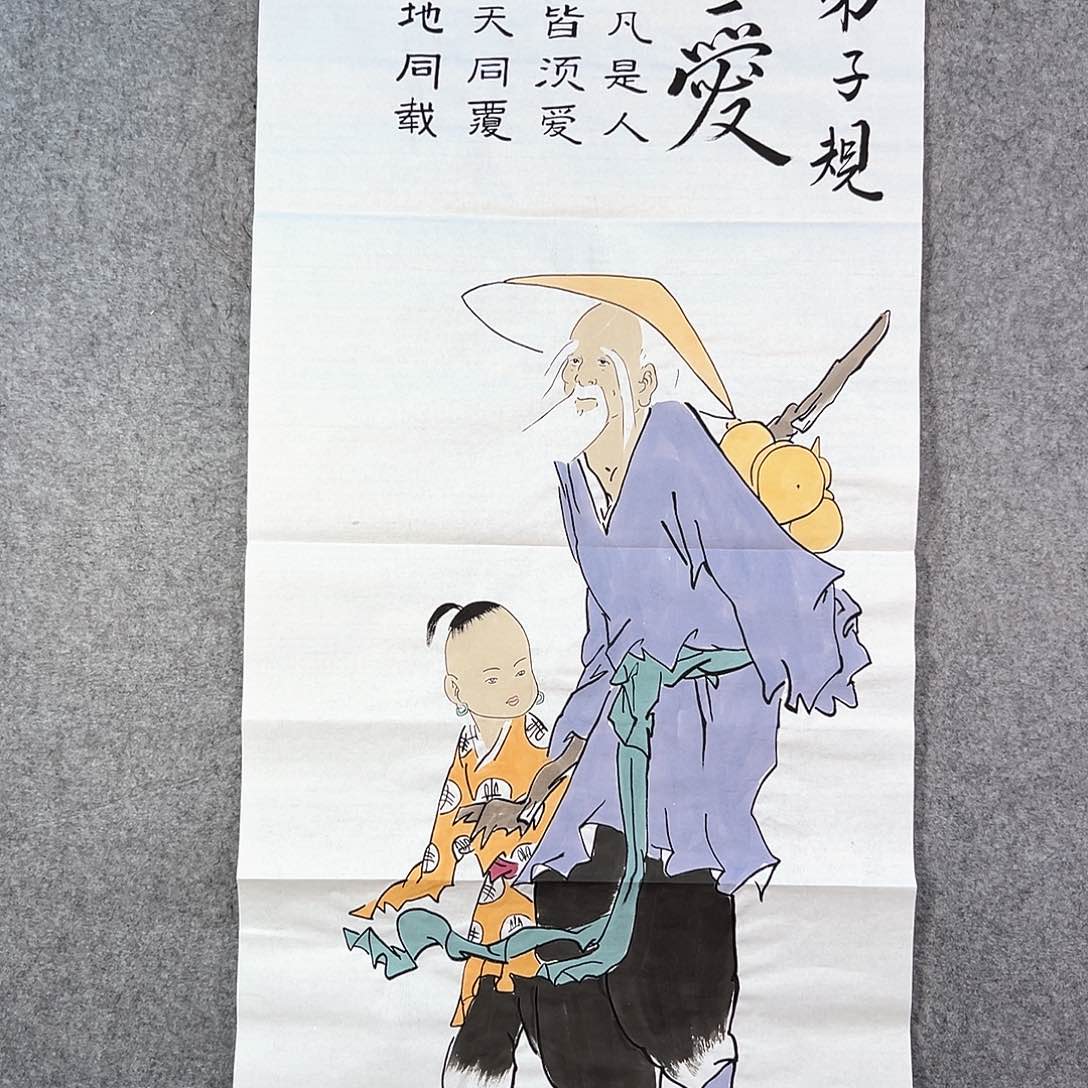 弟子規
愛
凡是人
皆须爱
天同覆
地同载